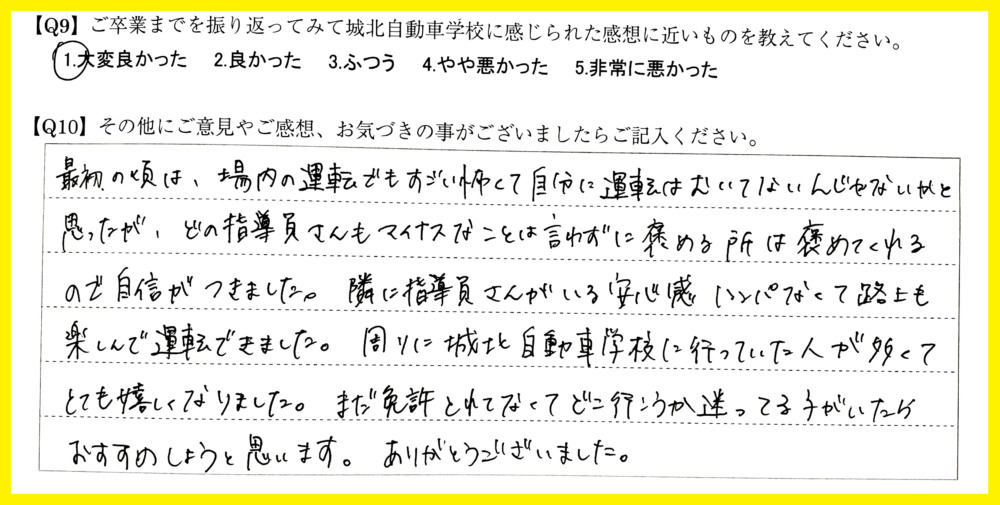 【Q9】ご卒業までを振り返ってみて城北自動車学校に感じられた感想に近いものを教えてください。
1.大変良かった 2.良かった 3.ふつう 4.やや悪かった 5.非常に悪かった
【Q10】その他にご意見やご感想、お気づきの事がございましたらご記入ください。
最初の頃は、場内の運転でもすごい怖くて自分に運転はむいてないんじゃないかと
思ったが、どの指導員さんもマイナスなことは言わずに褒める所は褒めてくれる
ので自信がつきました。隣に指導員さんがいる安心感ハンパなくて路上も
楽しんで運転できました。周りに城北自動車学校に行っていた人が多くて
とても嬉しくなりました。まだ免許とれてなくてどこ行こうか迷ってる子がいたら
おすすめしようと思います。ありがとうございました。